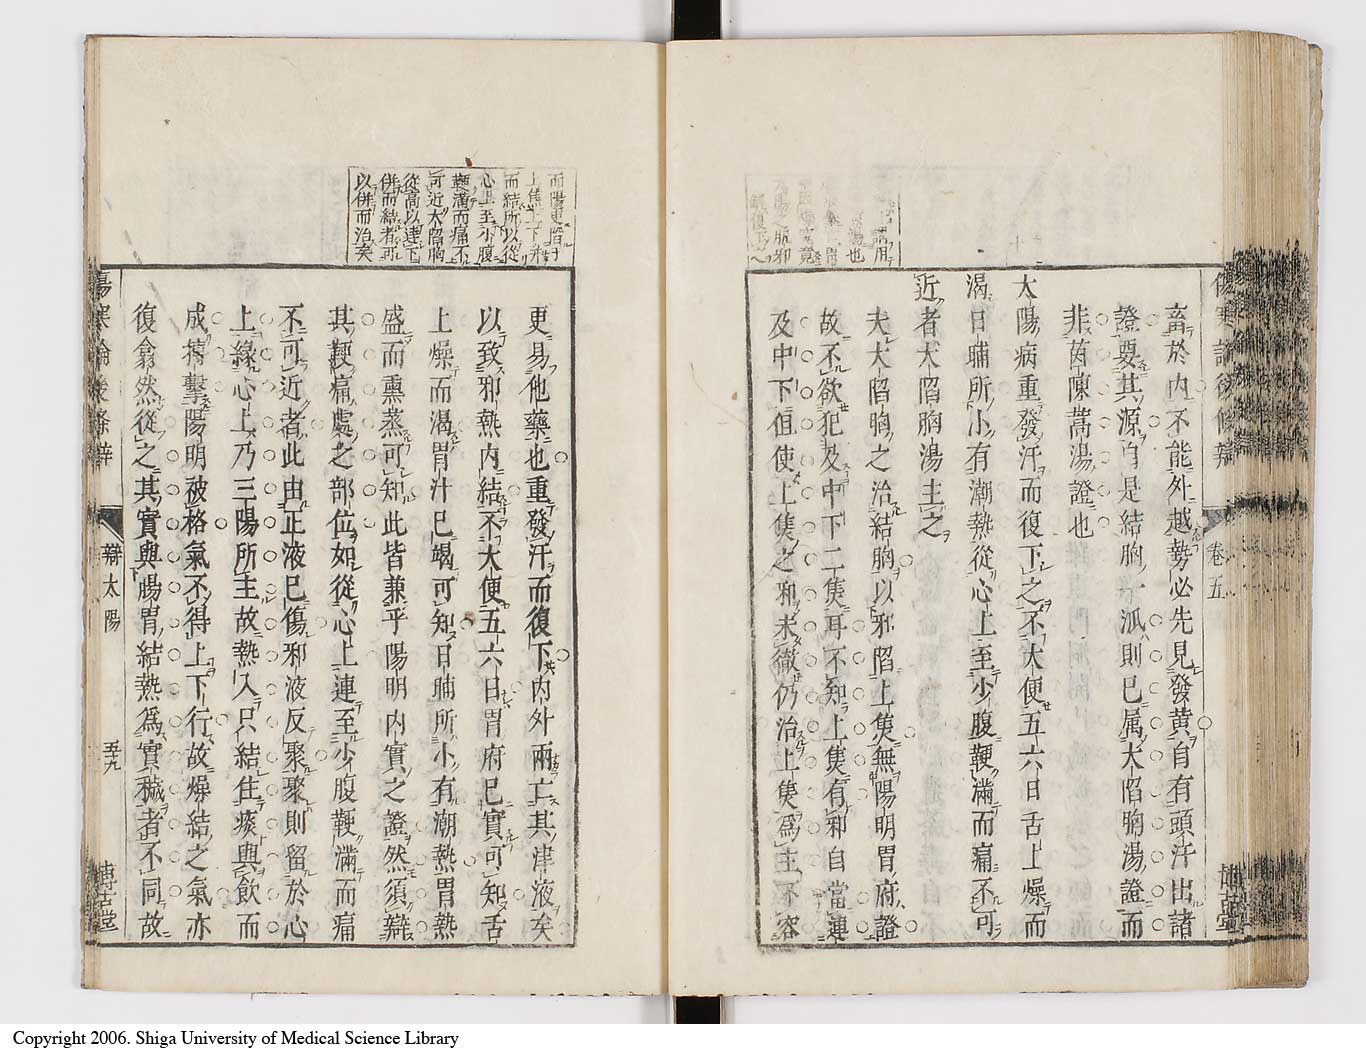 畜於内不能外越勢必先見發黄自有頭汗出諸
證要其源自是結胸一派則已属大陷胸湯證而
非茵陳蒿湯證也
太陽病重發汗而復下之不大便五六日舌上燥而
渴日晡所小有潮熱從心上至少腹鞕滿而痛不可
近者大陷胸湯主之
夫大陷胸之治結胸以邪陷上焦無陽明胃府證
故不欲犯及中下二焦耳不知上焦有邪自當連
及中下但使上焦之邪未徹仍治上焦爲主不容
更易他藥也重發汗而復下内外兩亡其津液矣
以致邪熱内結不大便五六日胃府已實可知舌
上燥而渴胃汁已竭可知日晡所小有潮熱胃熱
盛而熏蒸可知此皆兼乎陽明内實之證然須辯
其鞕痛處之部位如從心上連至少腹鞕滿而痛
不可近者此由正液已傷邪液反聚聚則留於心
上緣心上乃三陽所主故熱入只結住痰與飲而
成搏擊陽明被格氣不得上下行故燥結之氣亦
復翕然從之其實與腸胃結熱爲實穢者不同故
而陽更陷于
上焦上下
而結所以從
心上至少腹
鞕滿而痛不
可近大陷胸
從高以達下
併而結者再
以併而治矣
卷五
辯太陽
五十九
博古堂
Copyright 2006. Shiga University of Medical Science Library